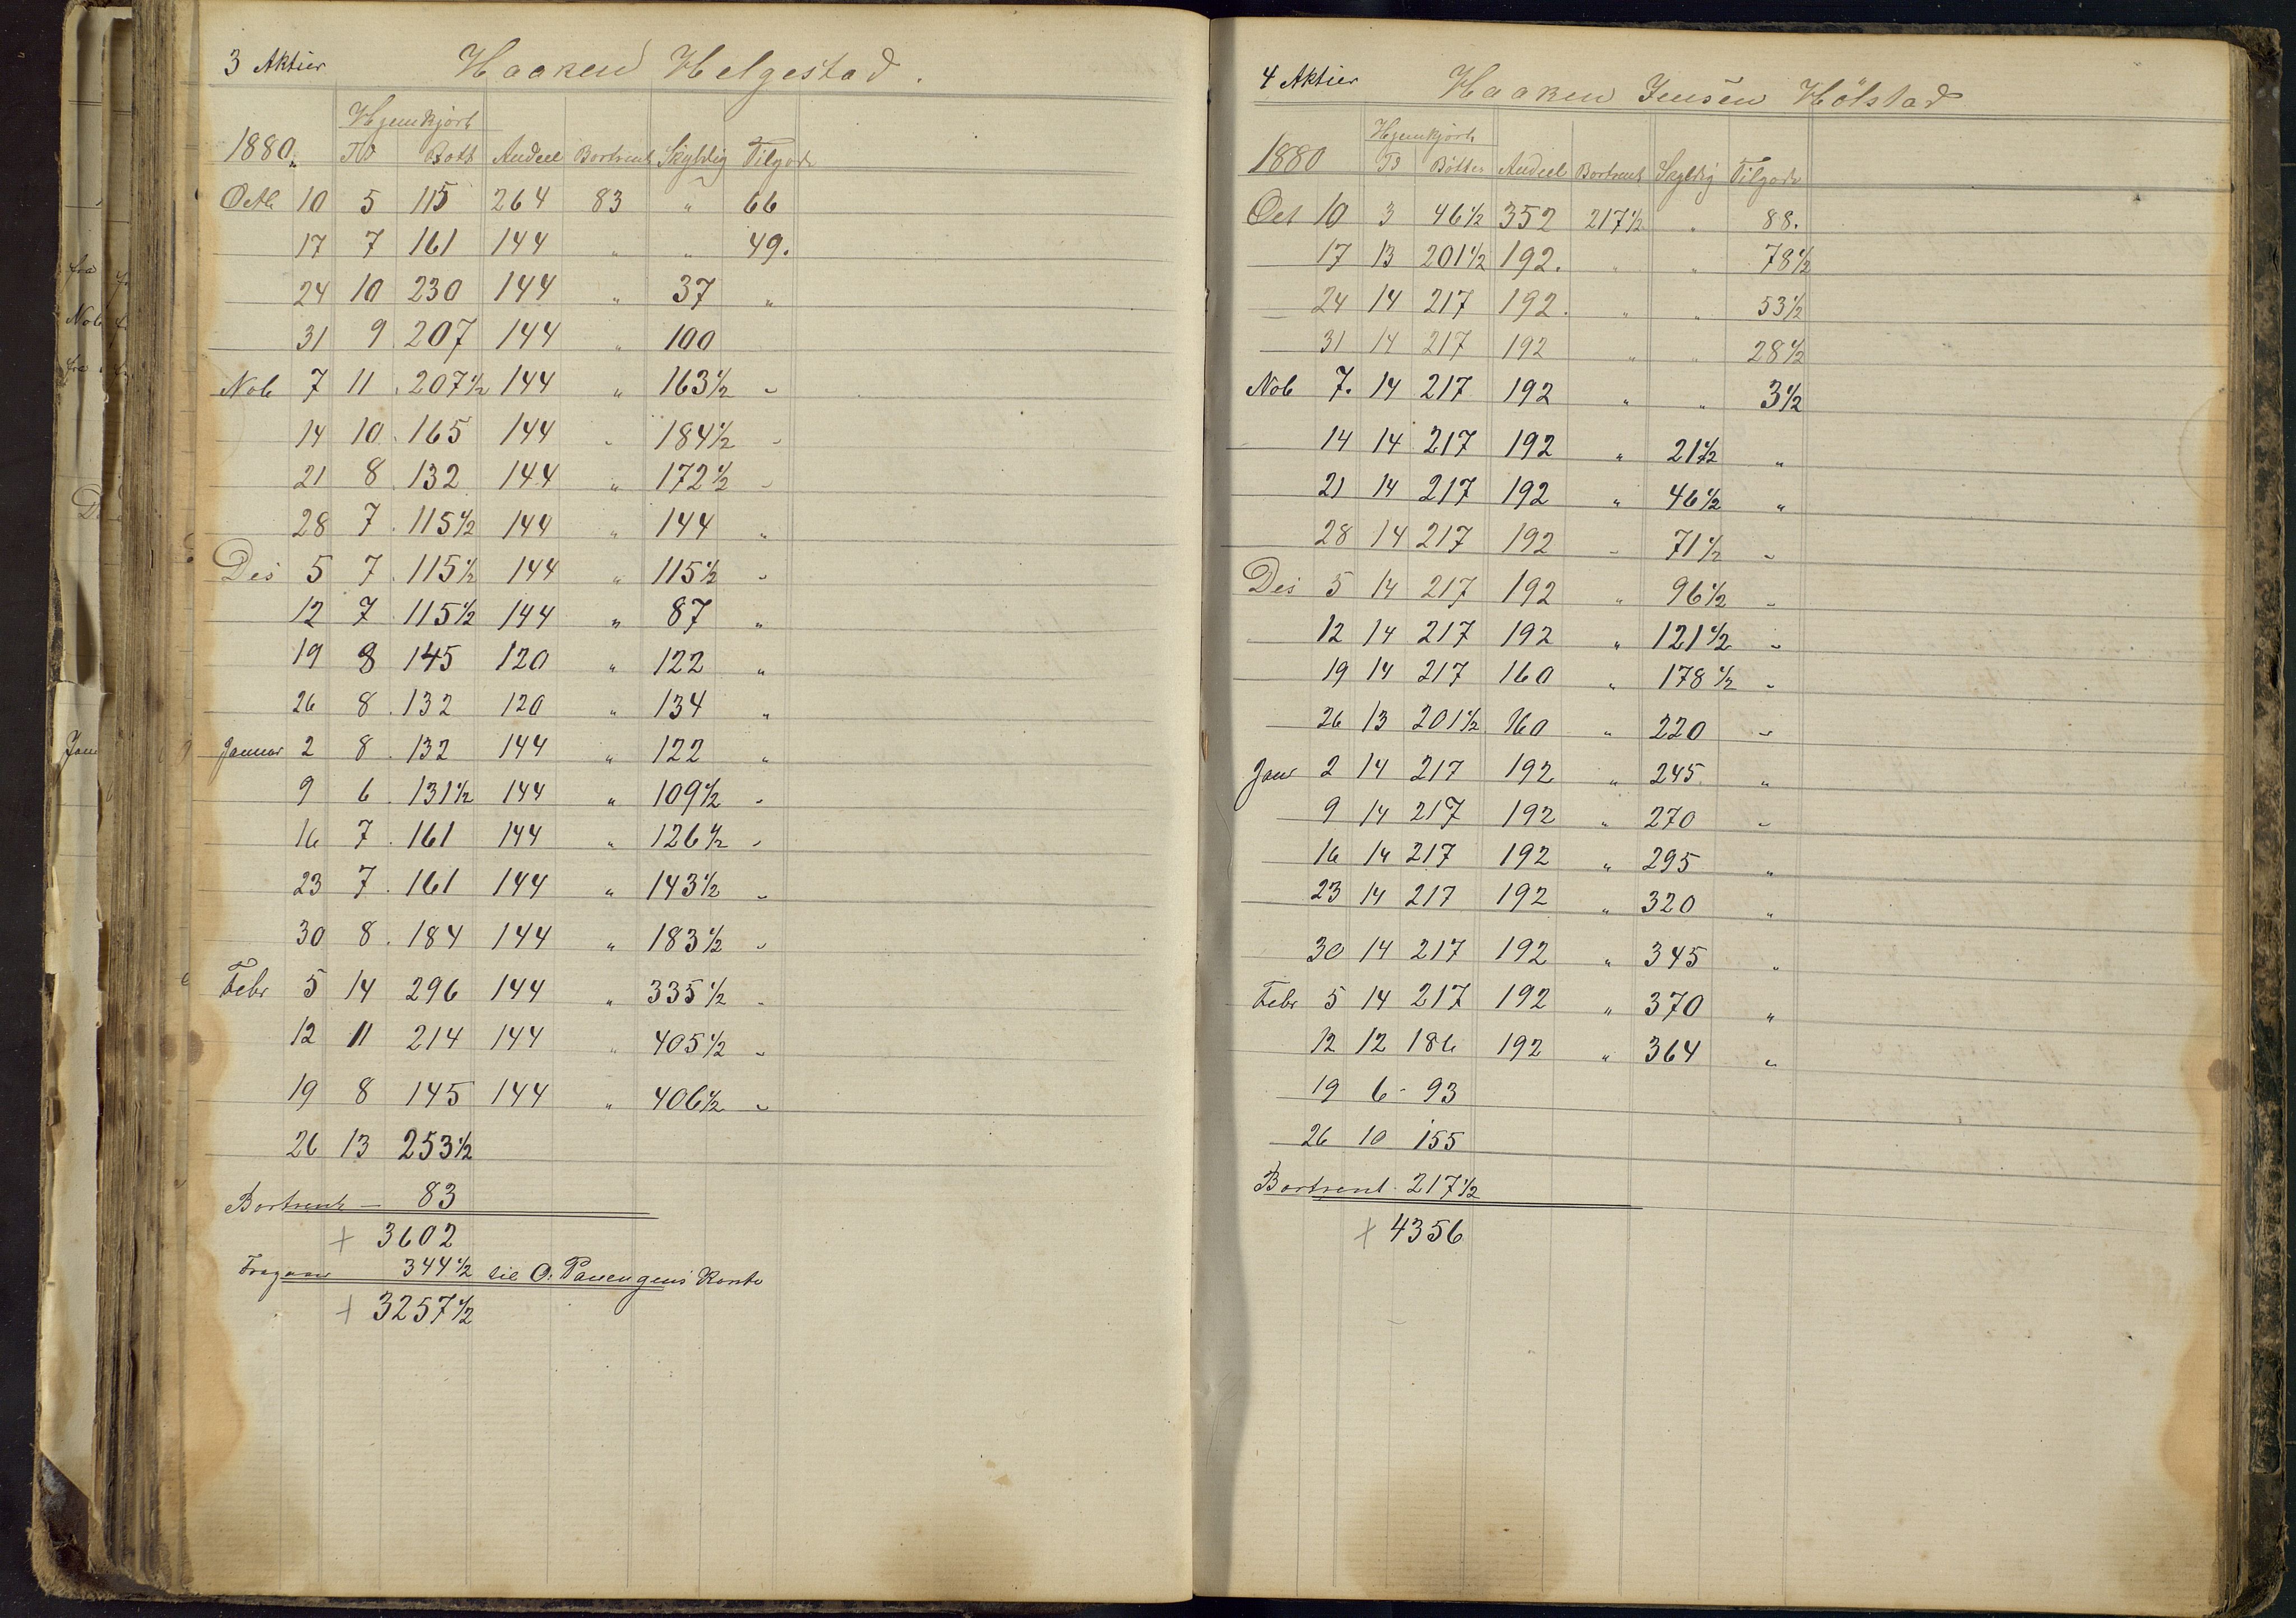 3 Aktier Haaken Helgestad.
Hjemkjört
1880. Td Bött Andeel Bortsent Skyldig Tilgode
Octb 10 5 115 264 83 " 66
17 7 161 144 " " 49.
24 10 230 144 " 37 "
31 9 207 144 " 100
Nob 7 11 207 1/2 144 " 163 1/2 "
14 10 165 144 " 184 1/2 "
21 8 132 144 " 172 1/2 "
28 7 115 1/2 144 " 144 "
Des 5 7 115 1/2 144 " 115 1/2 "
12 7 115 1/2 144 " 87 "
19 8 145 120 " 122 "
26 8 132 120 " 134 "
Januar 2 8 132 144 " 122 "
9 6 131 1/2 144 " 109 1/2 "
16 7 161 144 " 126 1/2 "
23 7 161 144 " 143 1/2 "
30 8 184 144 " 183 1/2 "
Febr 5 14 296 144 " 335 1/2 "
12 11 214 144 " 405 1/2 "
19 8 145 144 " 406 1/2 "
26 13 253 1/2
Bortsent - 83
+ 3602
344 1/2 til O. Konto
+ 3257 1/2
4 Aktier Haaken Jensen Hölstad
Hjemkjört
1880 Td Bötter Andeel Bortsent Skyldig Tilgode
Oct 10 3 46 1/2 352 217 1/2 " 88.
17 13 201 1/2 192. " " 78 1/2
24 14 217 192. " " 53 1/2
31 14 217 192 " " 28 1/2
Nob 7. 14 217 192 " " 3 1/2
14 14 217 192 " 21 1/2 "
21 14 217 192 " 46 1/2 "
28 14 217 192 " 71 1/2 "
Des 5 14 217 192 " 96 1/2 "
12 14 217 192 " 121 1/2 "
19 14 217 160 " 178 1/2 "
26 13 201 1/2 160 " 220 "
Janr 2 14 217 192 " 245 "
9 14 217 192 " 270 "
16 14 217 192 " 295 "
23 14 217 192 " 320 "
30 14 217 192 " 345 "
Febr 5 14 217 192 " 370 "
12 12 186 192 " 364 "
19 6 - 93
26 10 155
Bortsent. 217 1/2
+ 4356